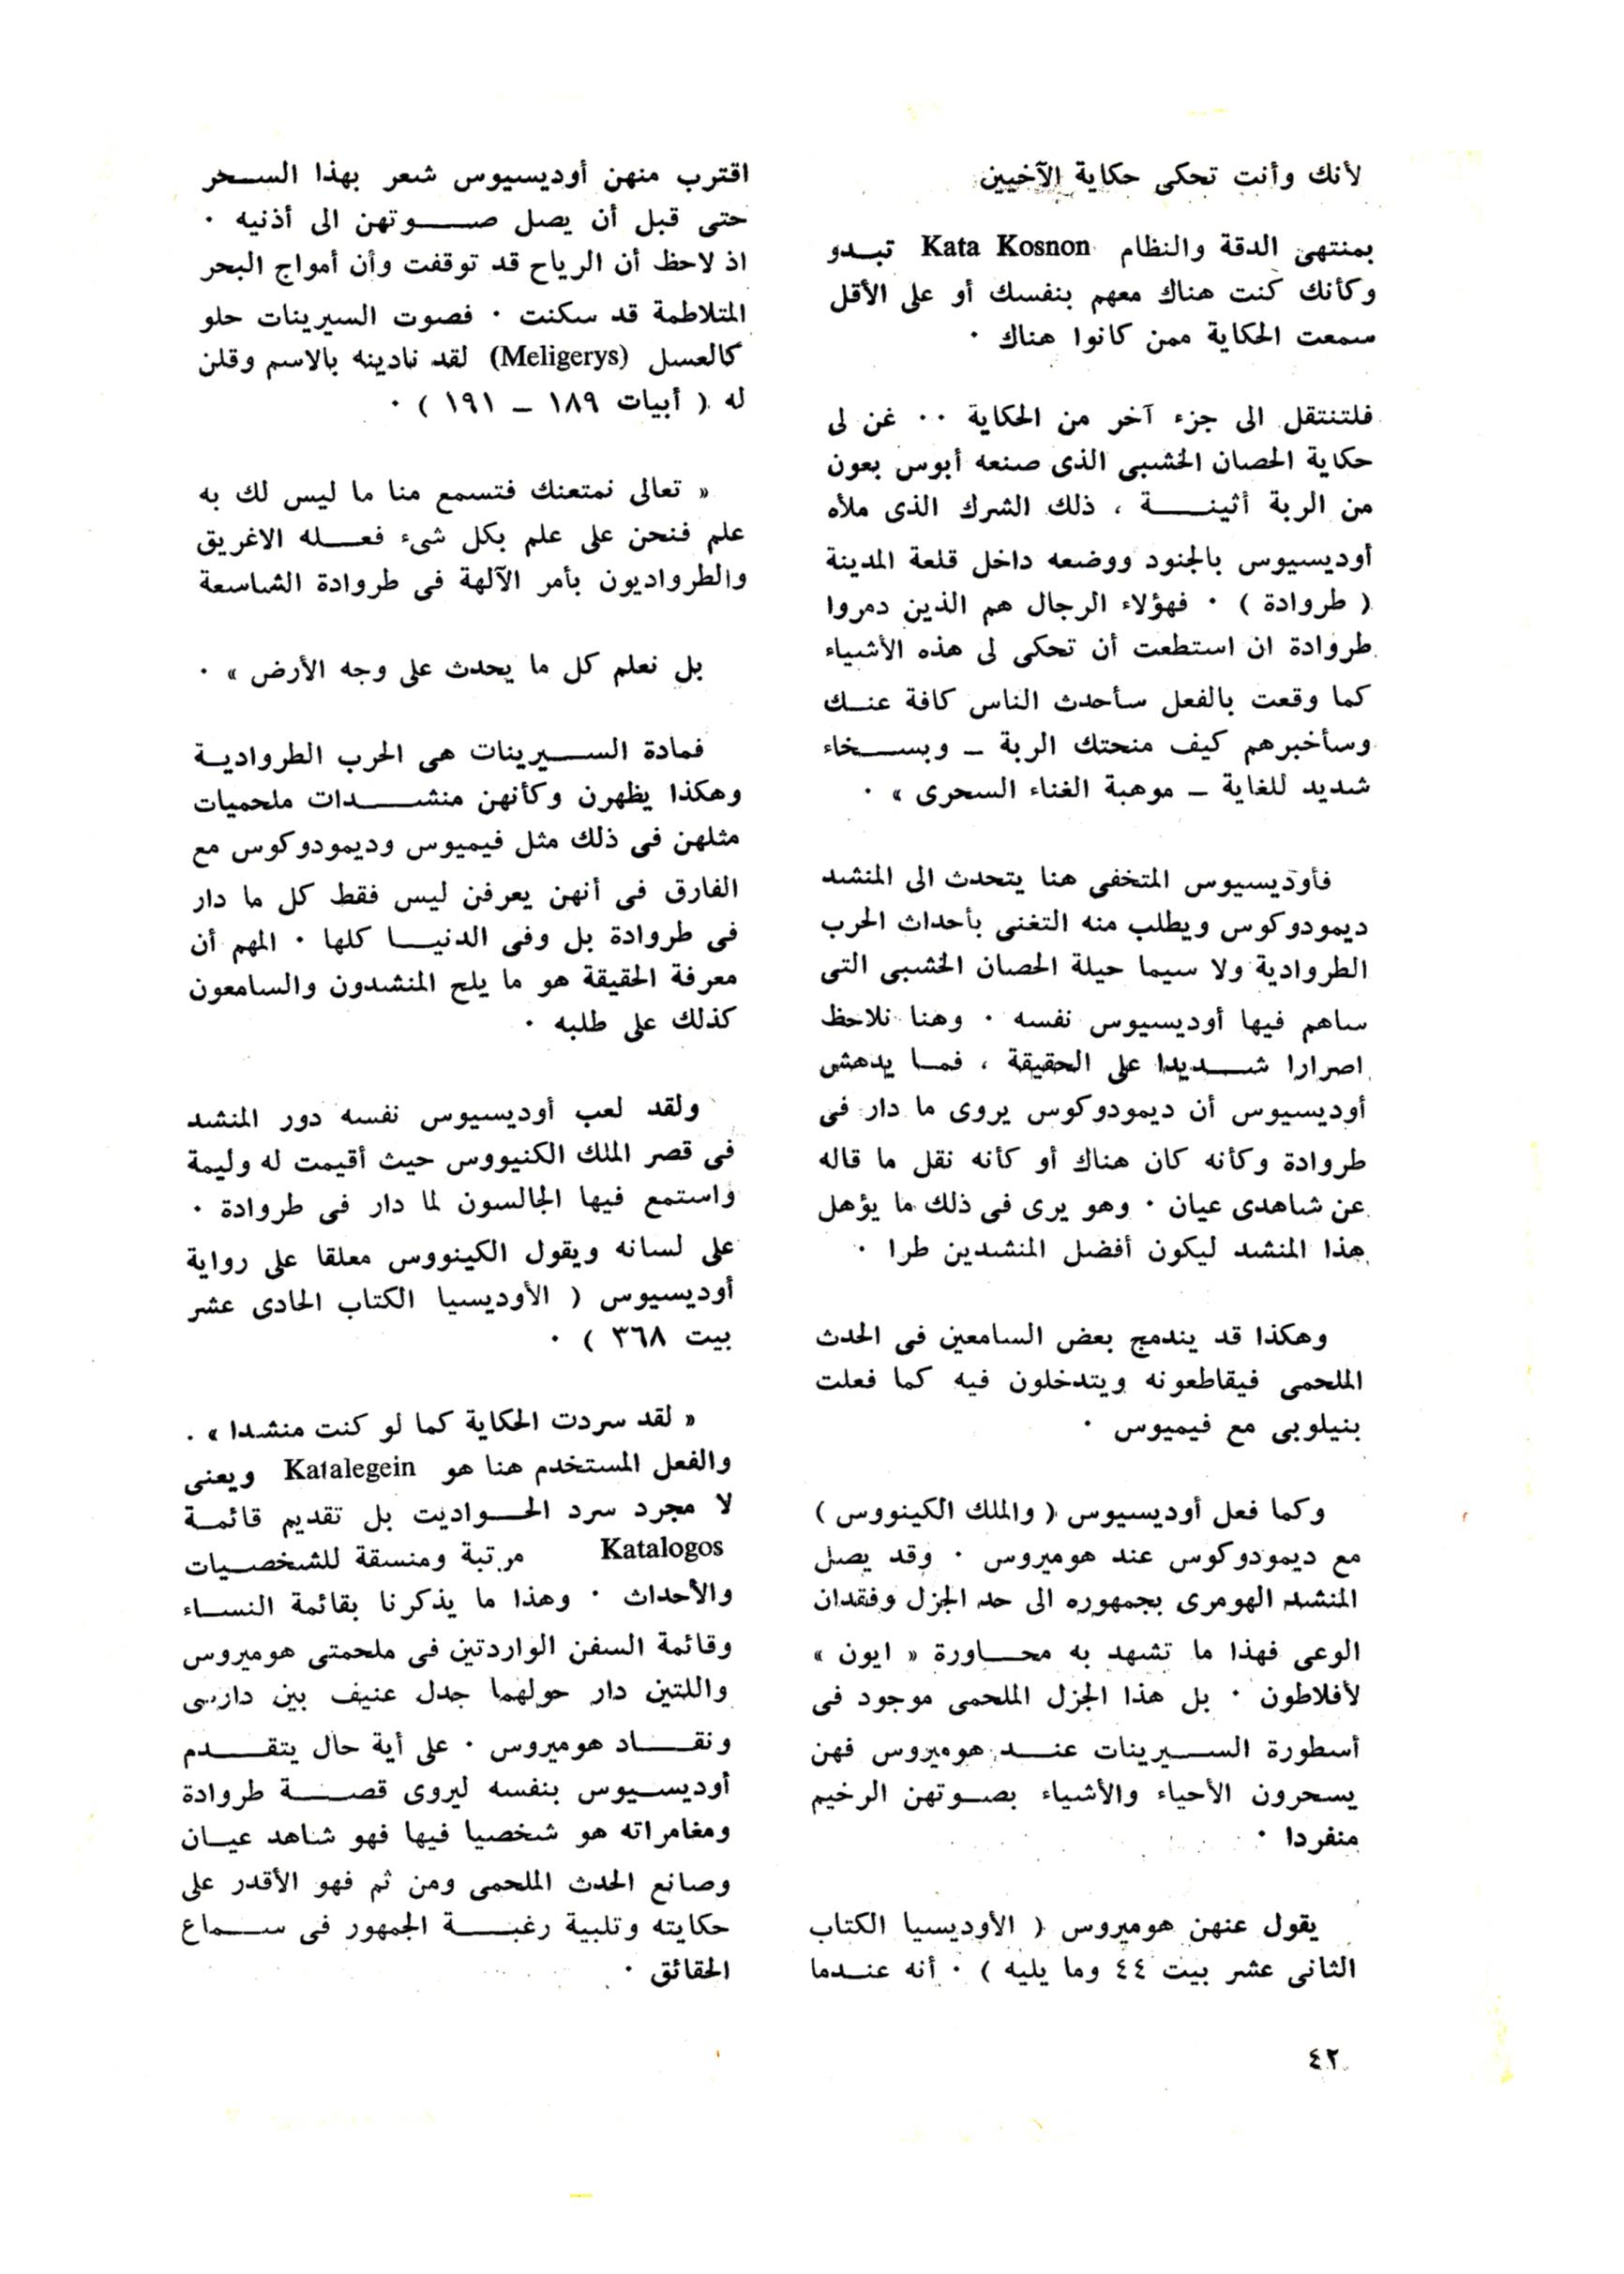 لأنك وأنت تحكى حكاية الآخيين
بمنتهى الدقة والنظام Kata Kosnon تبدو
وكأنك كنت هناك معهم بنفسك أو على الأقل
سمعت الحكاية ممن كانوا هناك ٠
فلتنتقل الى جزء آخر من الحكاية ٠٠ غن لى
حكاية الحصان الخشبى الذى صنعه أبوس بعون
من الربة أثينة ، ذلك الشرك الذى ملأه
أوديسيوس بالجنود ووضعه داخل قلعة المدينة
( طروادة ) ٠ فهؤلاء الرجال هم الذين دمروا
طروادة ان استطعت أن تحكى لى هذه الأشياء
كما وقعت بالفعل سأحدث الناس كافة عنك
وسأخبرهم كيف منحتك الربة – وبسخاء
شديد للغاية – موهبة الغناء السحرى » ٠
فأوديسيوس المتخفى هنا يتحدث الى المنشد
ديمودوكوس ويطلب منه التغنى بأحداث الحرب
الطروادية ولا سيما حيلة الحصان الخشبى التى
ساهم فيها أوديسيوس نفسه ٠ وهنا نلاحظ
اصرارا شديدا على الحقيقة ، فما يدهش
أوديسيوس أن ديمودوكوس يروى ما دار فى
طروادة وكأنه كان هناك أو كأنه نقل ما قاله
عن شاهدى عيان ٠ وهو يرى فى ذلك ما يؤهل
هذا المنشد ليكون أفضل المنشدين طرا ٠
وهكذا قد يندمج بعض السامعين فى الحدث
الملحمى فيقاطعونه ويتدخلون فيه كما فعلت
بنيلوبى مع فيميوس ٠
وكما فعل أوديسيوس ( والملك الكينووس )
مع ديمودوكوس عند هوميروس ٠ وقد يصل
المنشد الهومرى بجمهوره الى حد الجزل وفقدان
الوعى فهذا ما تشهد به محاورة « ايون »
لأفلاطون ٠ بل هذا الجزل الملحمى موجود فى
أسطورة السيرينات عند هوميروس فهن
يسحرون الأحياء والأشياء بصوتهن الرخيم
منفردا ٠
يقول عنهن هوميروس ( الأوديسيا الكتاب
الثانى عشر بيت ٤٤ وما يليه ) ٠ أنه عندما
اقترب منهن أوديسيوس شعر بهذا السحر
حتى قبل أن يصل صوتهن الى أذنيه ٠
اذ لاحظ أن الرياح قد توقفت وأن أمواج البحر
المتلاطمة قد سكنت ٠ فصوت السيرينات حلو
كالعسل (Meligerys) لقد نادينه بالاسم وقلن
له ( أبيات ١٨٩ – ١٩١ ) ٠
« تعالى نمتعنك فتسمع منا ما ليس لك به
علم فنحن على علم بكل شىء فعله الاغريق
والطرواديون بأمر الآلهة فى طروادة الشاسعة
بل نعلم كل ما يحدث على وجه الأرض » ٠
فمادة السيرينات هى الحرب الطروادية
وهكذا يظهرن وكأنهن منشدات ملحميات
مثلهن فى ذلك مثل فيميوس وديمودوكوس مع
الفارق فى أنهن يعرفن ليس فقط كل ما دار
فى طروادة بل وفى الدنيا كلها ٠ المهم أن
معرفة الحقيقة هو ما يلح المنشدون والسامعون
كذلك على طلبه ٠
ولقد لعب أوديسيوس نفسه دور المنشد
فى قصر الملك الكنيووس حيث أقيمت له وليمة
واستمع فيها الجالسون لما دار فى طروادة ٠
على لسانه ويقول الكينووس معلقا على رواية
أوديسيوس ( الأوديسيا الكتاب الحادى عشر
بيت ٣٦٨ ) ٠
« لقد سردت الحكاية كما لو كنت منشدا » .
والفعل المستخدم هنا هو Katalegein ويعنى
لا مجرد سرد الحواديت بل تقديم قائمة
Katalogos مرتبة ومنسقة للشخصيات
والأحداث ٠ وهذا ما يذكرنا بقائمة النساء
وقائمة السفن الواردتين فى ملحمتى هوميروس
واللتين دار حولهما جدل عنيف بين دارسى
ونقاد هوميروس ٠ على أية حال يتقدم
أوديسيوس بنفسه ليروى قصة طروادة
ومغامراته هو شخصيا فيها فهو شاهد عيان
وصانع الحدث الملحمى ومن ثم فهو الأقدر على
حكايته وتلبية رغبة الجمهور فى سماع
الحقائق ٠
٤٢